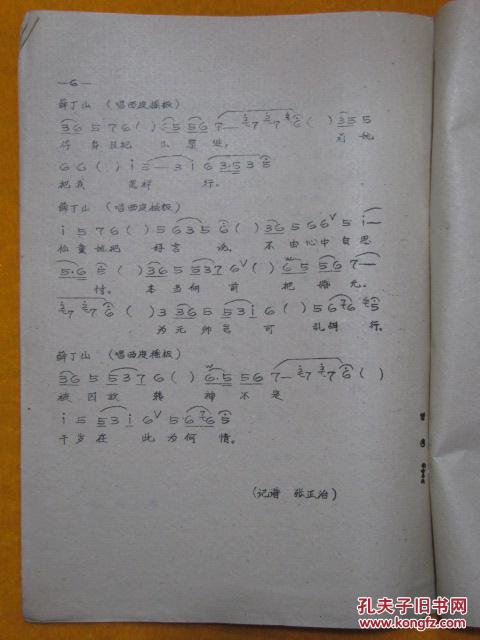 —6—
薛丁山 (唱西皮摇板)
3 6 5 7 6 ( ) 5 5 6 7 — 7 7 6 ( ) 3 5 5
待身且把 进, 看她
6 6 ( ) i 5 — 3 i 6 3·5 3 5
把我 怎样 行。
薛丁山 (唱西皮摇板)
i 5 7 6 ( ) 5 6 3 5 6 ( ) 3 6 5 6 6 V 5 i —
仙童她把 好言 说, 不由心中自思
5·6 5 ( ) 3 6 5 5 3 7 6 V ( ) 6 5 5 6 7 —
情。 本当向前 把 元。
7 7 6 ( ) 3 3 6 5 5 3 i 6 ( ) 5 6 7 6 5
为元帅怎可 乱胡行。
薛丁山 (唱西皮摇板)
3 6 5 5 3 7 6 ( ) 6·5 5 6 7 — 7 7 6 ( )
被困 神不是
i 5 5 3 i 6 V 5·6 7 6 5
千岁在此为何情。
(记谱 张正治)
孔夫子旧书网
www.kongfz.com